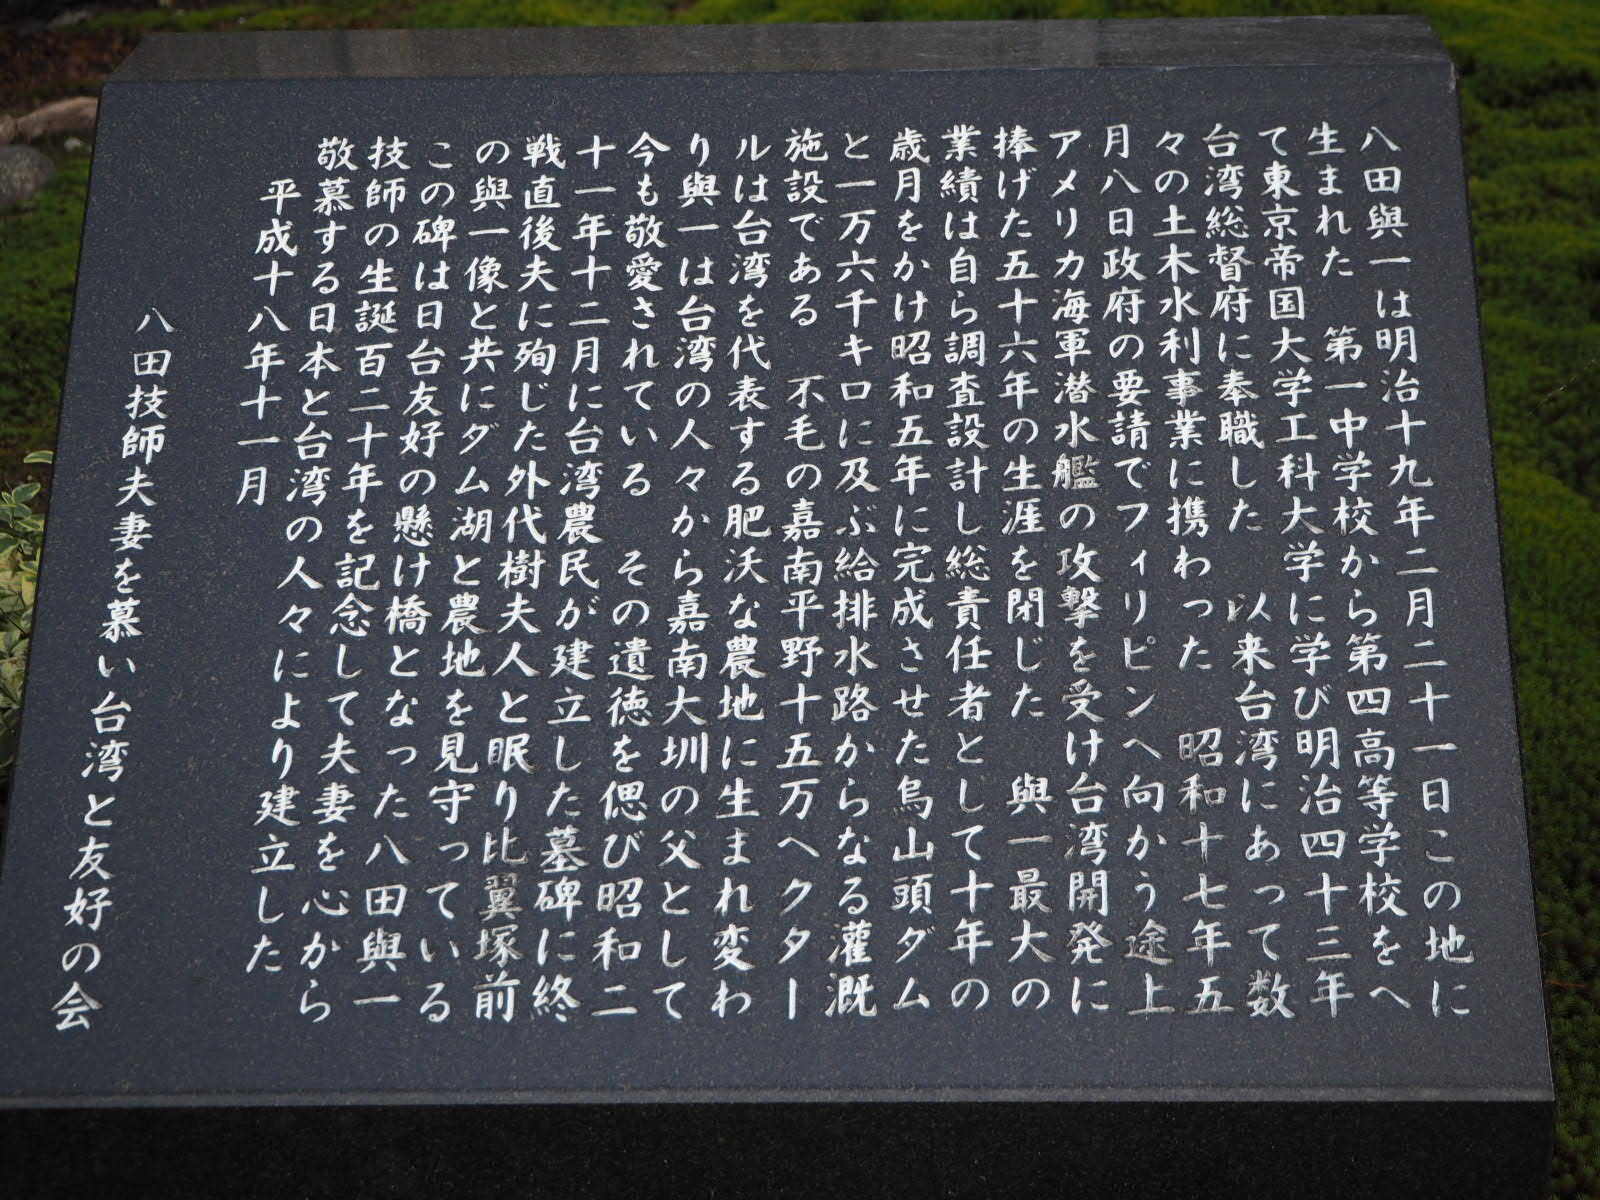 八田與一は明治十九年二月二十一日この地に
生まれた　第一中学校から第四高等学校をへ
て東京帝国大学工科大学に学び明治四十三年
台湾総督府に奉職した　以来台湾にあって数
々の土木水利事業に携わった　昭和十七年五
月八日政府の要請でフィリピンへ向かう途上
アメリカ海軍潜水艦の攻撃を受け台湾開発に
捧げた五十六年の生涯を閉じた　與一最大の
業績は自ら調査設計し総責任者として十年の
歳月をかけ昭和五年に完成させた烏山頭ダム
と一万六千キロに及ぶ給排水路からなる灌漑
施設である　不毛の嘉南平野十五万ヘクター
ルは台湾を代表する肥沃な農地に生まれ変わ
り與一は台湾の人々から嘉南大圳の父として
今も敬愛されている　その遺徳を偲び昭和二
十一年十二月に台湾農民が建立した墓碑に終
戦直後夫に殉じた外代樹夫人と眠り比翼塚前
の與一像と共にダム湖と農地を見守っている
この碑は日台友好の懸け橋となった八田與一
技師の生誕百二十年を記念して夫妻を心から
敬慕する日本と台湾の人々により建立した
平成十八年十一月
八田技師夫妻を慕い台湾と友好の会